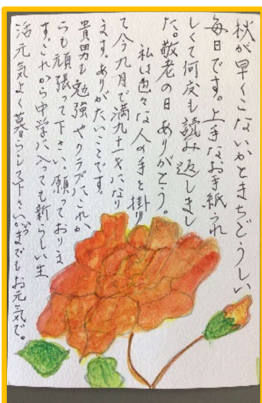 秋が早くこないかとまちどうしい
毎日です。上手なお手紙うれ
しくて何度も読み返しまし
た。敬老の日ありがとう。
私は色々な人の手を掛り
て今九月で満九十才になり
ます。ありがたいことです。
貴男も勉強やクラブにこれか
らも頑張って下さい。願っておりま
す。これから中学に入っても新らしい生
活元気よく暮らして下さいいつまでもお元気で。